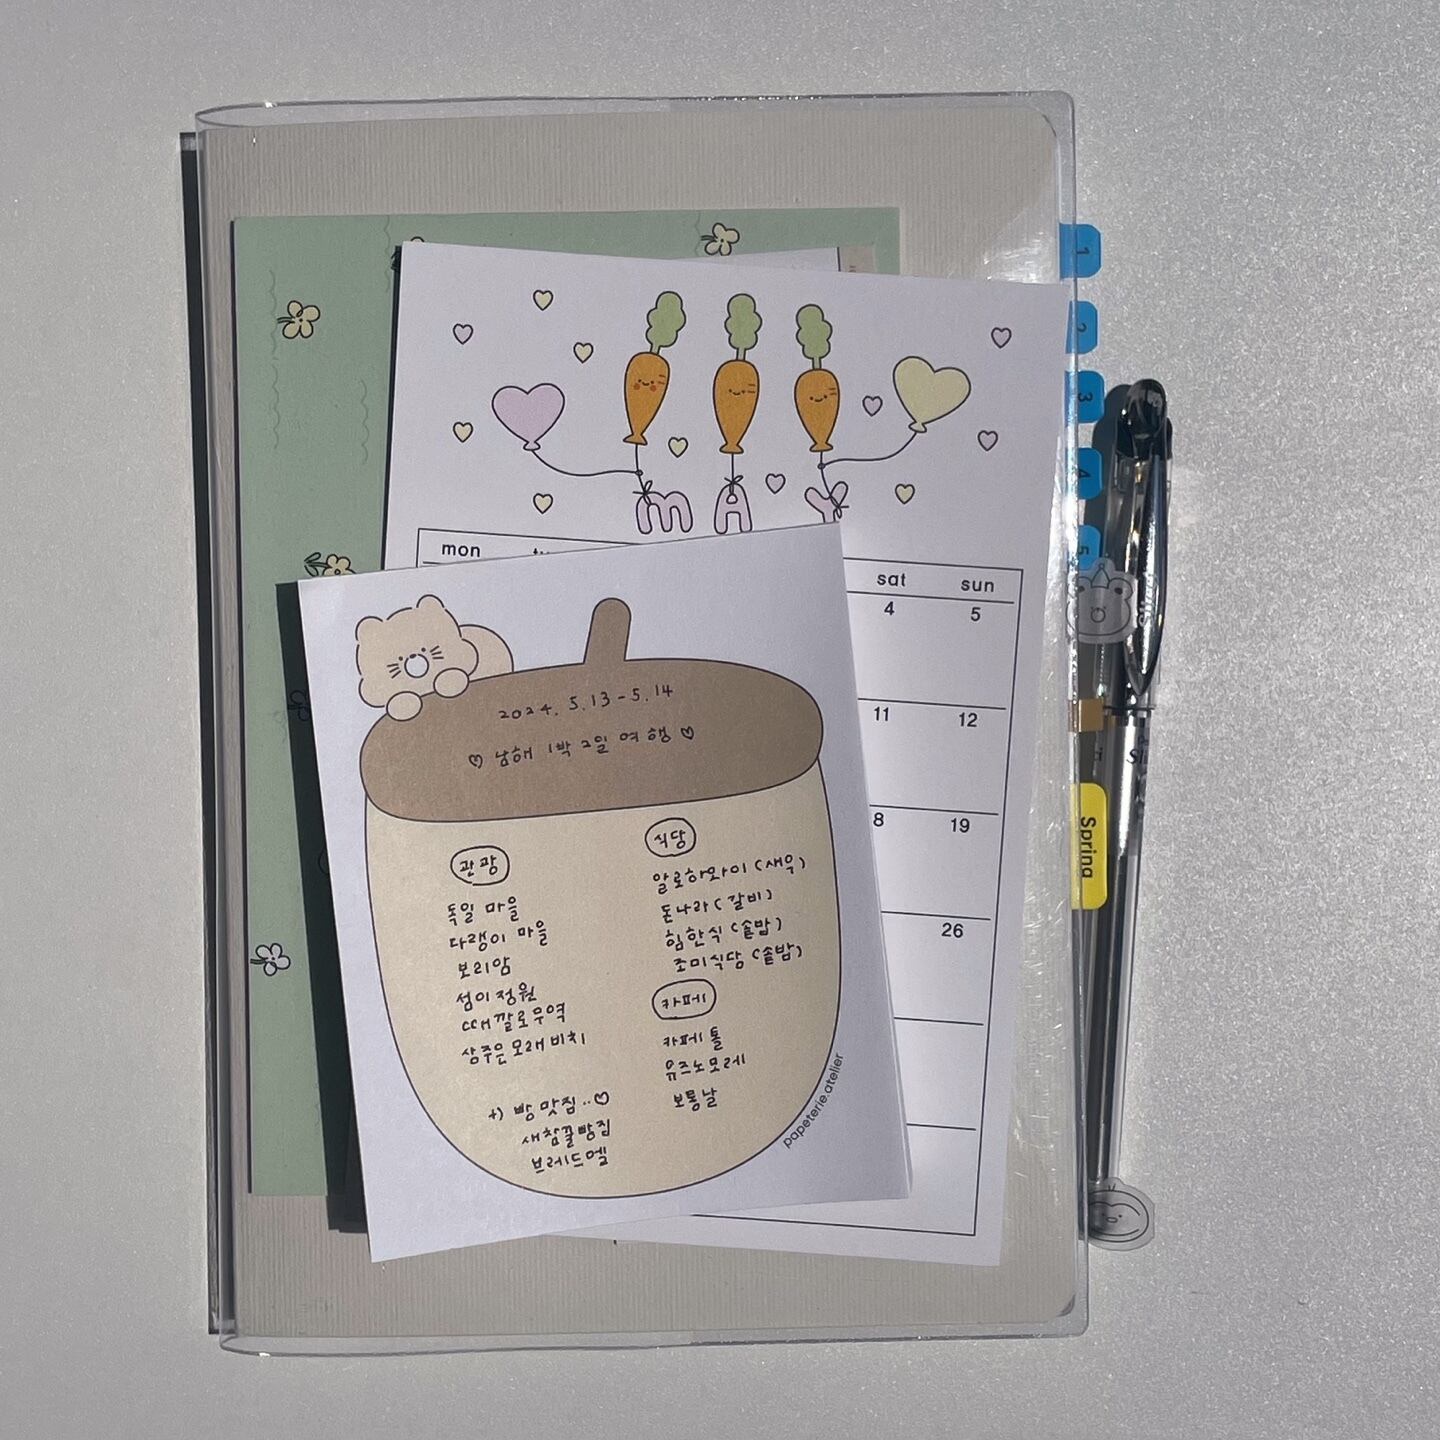 MAY
mon
sat sun
4 5
11 12
8 19
26
2024. 5.13 - 5.14
♡ 남해 1박 2일 여행 ♡
관광
독일 마을
다랭이 마을
보리암
섬이정원
때깔로무역
상주은모래비치
+) 빵 맛집..♡
새참꿀빵집
브레드멜
식당
알로하와이 (새우)
돈나라 (갈비)
힘한식 (솥밥)
조미식당 (솥밥)
카페
카페 톨
유즈노모레
보통날
papeterie.atelier
1
2
3
4
5
Spring